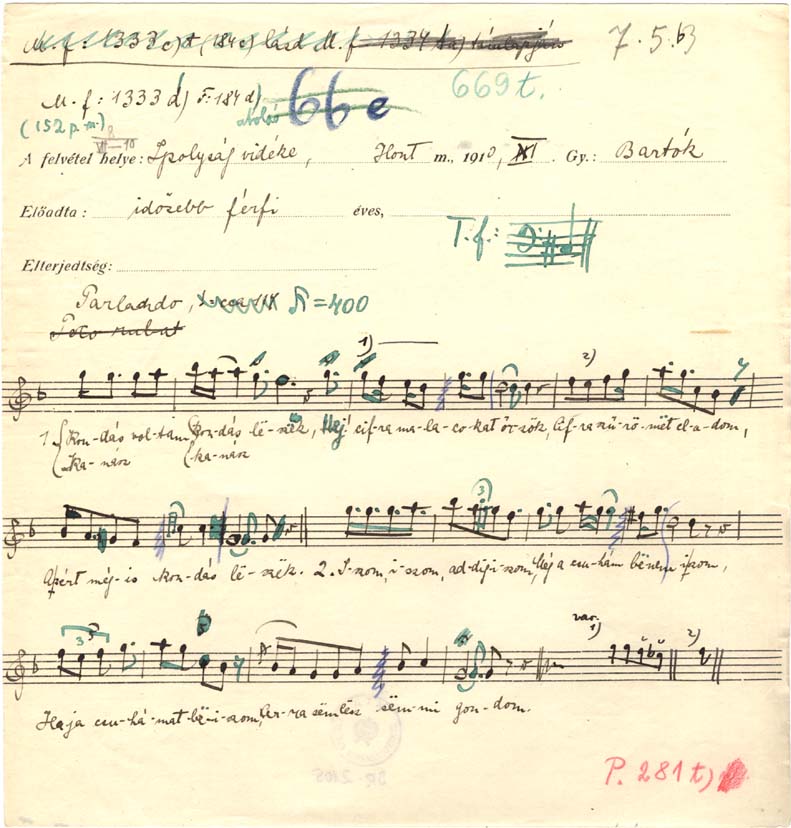 M. f: 1333 c) t (184 c) lásd M. f 1334 a)
7. 5. 63
M. f: 1333 d) F: 184 d)
66 e
669 t.
(152 p. m.)
A felvétel helye: Ipolyság vidéke, Hont m., 1910, XI Gy.: Bartók
VI—10
Előadta: idősebb férfi éves,
T. f.:
Elterjedtség:
Parlando, =400
Poco rubato
1)
2)
1. Kon-dás vol-tam, Kon-dás lë-szëk, Hej! cif-ra ma-la-co-kat őr-zök, Cif-ra szű-rö-mët el-a-dom,
Ka-nász ka-nász
3
Azért még-is kon-dás lë-szëk. 2. I-szom, i-szom, ad-dig i-szom, Hej a csu-hám bënem iszom,
3
var. 1)
2)
Ha ja csu-há-mat bë-i-szom, Ar-ra sëm lësz sëm-mi gon-dom.
P. 281 t)